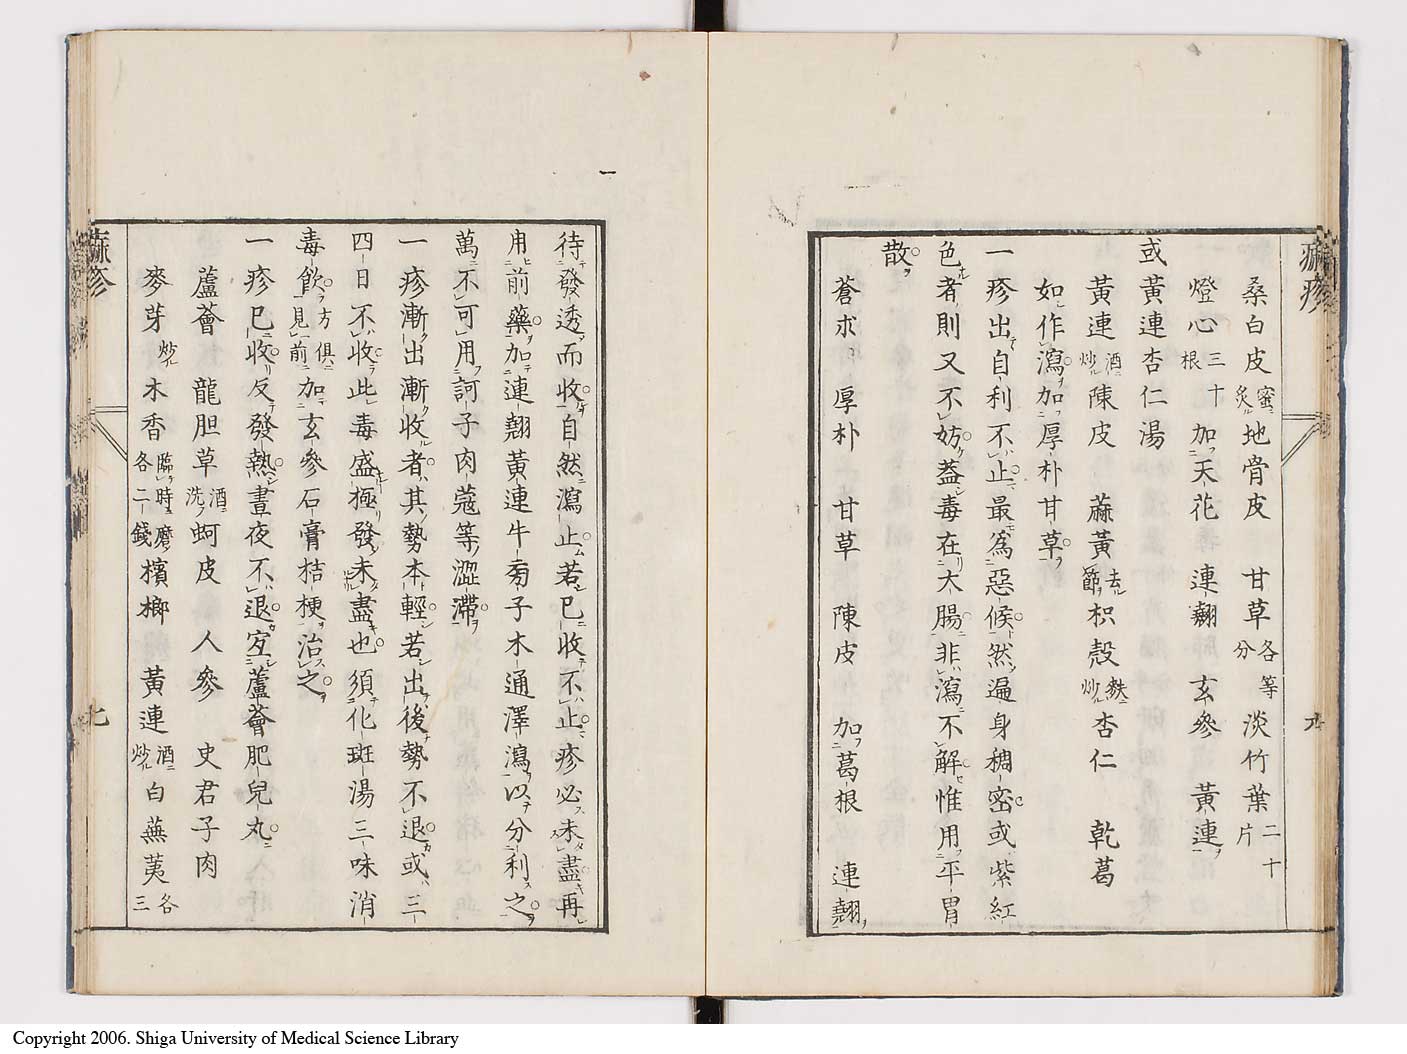 麻疹
桑白皮蜜炙地骨皮 甘草各等分淡竹葉二十片
燈心三十根加天花 連翹 玄參 黃連
或黃連杏仁湯
黃連酒炒陳皮 蔴黃去節枳殼麩炒杏仁 乾葛
如作瀉加厚朴甘草
一疹出自利不止最為惡候然遍身稠密或紫紅
色者則又不妨葢毒在大腸非瀉不解惟用平胃
散
蒼朮 厚朴 甘草 陳皮 加葛根 連翹
待發透而收自然瀉止若已收不止疹必未盡再
用前藥加連翹黃連牛蒡子木通澤瀉以分利之
萬不可用訶子肉蔻等澀滯
一疹漸出漸收者其勢本輕若出後勢不退或三
四日不收此毒盛極發未盡也須化斑湯三味消
毒飲方俱見前加玄參石膏桔梗治之
一疹已收反發熱晝夜不退宜蘆薈肥兒丸
蘆薈 龍胆草酒洗蚵皮 人參 史君子肉
麥芽炒木香臨時磨各二錢檳榔 黃連酒炒白蕪荑各三
麻疹
七
Copyright 2006. Shiga University of Medical Science Library